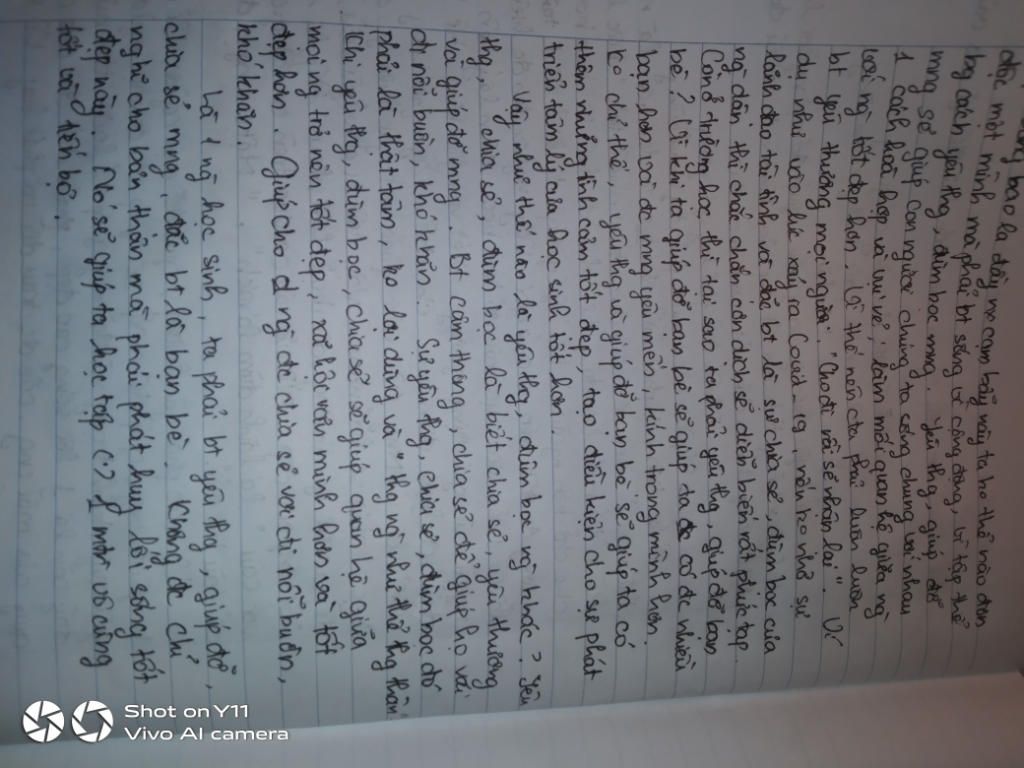 bao la đầy mơ cạm bẫy này ta ko thể nào đơn
độc một mình mà phải bt sống vì cộng đồng, vì tập thể
bằng cách yêu thg, đùm bọc mng. Yêu thg, giúp đỡ
mng sẽ giúp con người chúng ta sống chung với nhau
1 cách hoà hợp và vui vẻ, làm mối quan hệ giữa ng
với ng tốt đẹp hơn. Vì thế nên cta phải luôn luôn
bt yêu thương mọi người. "Cho đi rồi sẽ nhận lại". Ví
dụ như vào lúc xảy ra Covid-19, nếu ko nhờ sự
lãnh đạo tài tình và đặc bt là sự chia sẻ, đùm bọc của
ng dân thì chắc chắn cơn dịch sẽ diễn biến rất phức tạp.
Còn ở trường học thì tại sao ta phải yêu thg, giúp đỡ bạn
bè? Vì khi ta giúp đỡ bạn bè sẽ giúp ta có đc nhiều
bạn hơn và đc mng yêu mến, kính trọng mình hơn.
Ko chỉ thế, yêu thg và giúp đỡ bạn bè sẽ giúp ta có
thêm những tình cảm tốt đẹp, tạo điều kiện cho sự phát
triển tâm lý của học sinh tốt hơn.
Vậy như thế nào là yêu thg, đùm bọc ng khác? Yêu
thg, chia sẻ, đùm bọc là biết chia sẻ, yêu thương
và giúp đỡ mng. Bt cảm thông, chia sẻ để giúp họ vơi
đi nỗi buồn, khó khăn. Sự yêu thg, chia sẻ, đùm bọc đó
phải là thật tâm, ko lợi dụng và "thg ng như thể thg thân".
Khi yêu thg, đùm bọc, chia sẻ sẽ giúp quan hệ giữa
mọi ng trở nên tốt đẹp, xã hội văn minh hơn và tốt
đẹp hơn. Giúp cho 1 ng đc chia sẻ vơi đi nỗi buồn,
khó khăn.
Là 1 ng học sinh, ta phải bt yêu thg, giúp đỡ,
chia sẻ mng, đặc bt là bạn bè. Không đc chỉ
nghĩ cho bản thân mà phải phát huy lối sống tốt
đẹp này. Nó sẽ giúp ta học tập (.) 1 mtr vô cùng
tốt và tiến bộ.
Shot on Y11
Vivo AI camera